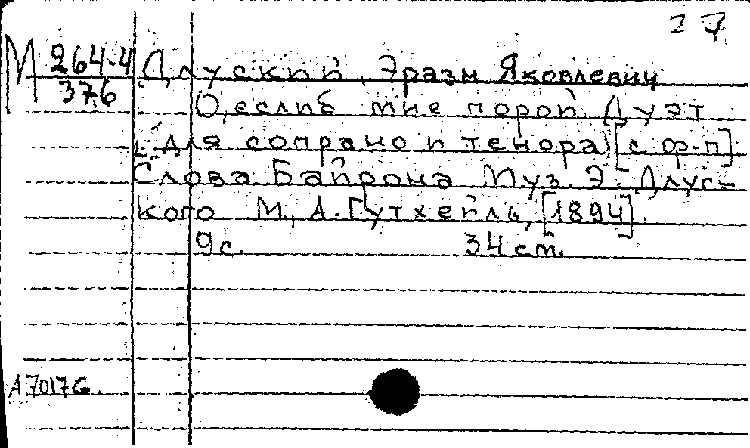 27
М 264-4 Длуский, Эразм Яковлевич
376 О, еслиб мне порой Дуэт
для сопрано и тенора [с ф-п].
Слова Байрона Муз. Э. Длус-
кого М., А. Гутхейль, [1894].
9 с. 34 см.
А 7017 G